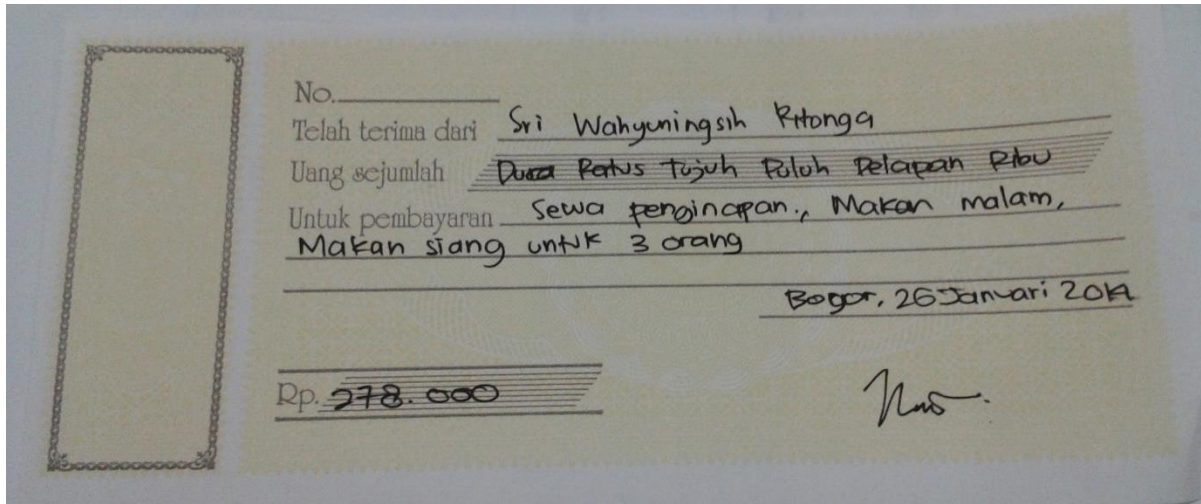 No.
Telah terima dari Sri Wahyuningsih Ritonga
Uang sejumlah Dua Ratus Tujuh Puluh Delapan Ribu
Untuk pembayaran Sewa penginapan., Makan malam,
Makan siang untuk 3 orang
Bogor, 26 Januari 2014
Rp. 278.000